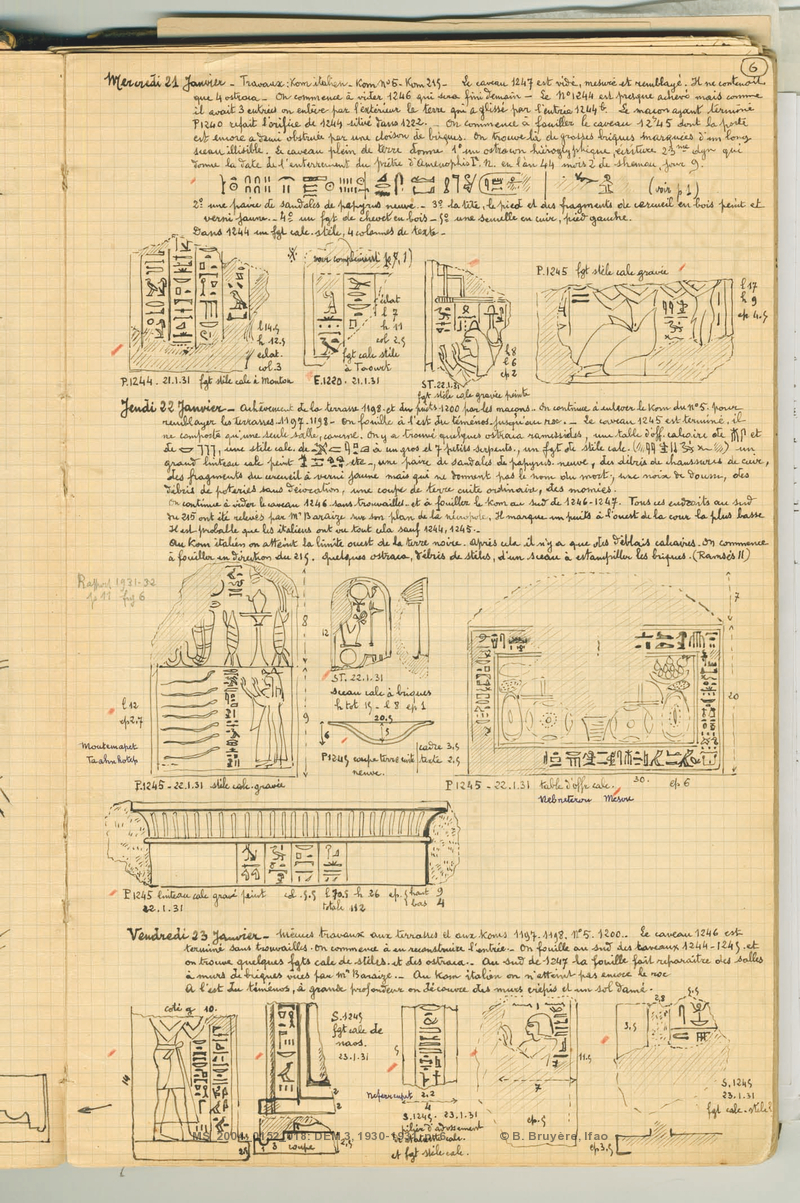 6
Mercredi 21 Janvier - Travaux: Kom italien - Kom N°5 - Kom 215 - Le caveau 1247 est vidé, mesuré et remblayé. Il ne contenait
que 4 ostraca - On commence à vider 1246 qui sera fini demain - Le N° 1244 est presque achevé mais comme
il avait 3 entrées on enlève par l'extérieur la terre qui a glissé par l'entrée 1244 b. Le maçon ayant terminé
P1240 refait l'orifice de 1244 situé dans 1222. - On commence à fouiller le caveau 1245 dont la porte
est encore à demi obstruée par une cloison de briques. On trouve là de grosses briques marquées d'un long
sceau illisible. Le caveau plein de terre donne 1° un ostracon hiéroglyphique, écriture dyn qui
donne la date de l'enterrement du prêtre d'Amenophis I N. en l'an 44 mois 2 de shemou, jour 9.
(voir p 1)
2° une paire de sandales de papyrus neuve. - 3° la tête, le pied et des fragments de cercueil en bois peint et
verni jaune. - 4° un fgt de chevet en bois - 5° une semelle en cuir, pied gauche.
Dans 1244 un fgt calc. stèle, 4 colonnes de texte -
voir complément
P.1245 fgt stèle calc gravée
l 17
h 9
ep 4.5
l 14.5
h 12.5
éclat.
col. 3
éclat
l 7
h 11
col 2.5
fgt calc stèle
à Taourt
l 6
ep 2
P.1244. 21.1.31 fgt stèle calc à Monton
E.1220. 21.1.31
ST. 22.1.31
fgt stèle calc gravée peinte
Jeudi 22 Janvier - Achèvement de la terrasse 1198 et du puits 1200 par les maçons. On continue à enlever le Kom du N°5 pour
remblayer les terrasses 1197-1198 - On fouille à l'est du téménos jusqu'au roc. - Le caveau 1245 est terminé, il
ne comporte qu'une seule salle, caverne. On y a trouvé quelques ostraca ramessides, une table d'off. calcaire de et
de, une stèle calc. de à un gros et 7 petits serpents, un fgt de stèle calc. un
grand linteau calc peint etc, une paire de sandales de papyrus neuve, des débris de chaussures de cuir,
des fragments du cercueil à verni jaune mais qui ne donnent pas le nom du mort, une noix de doum, des
débris de poteries sans décoration, une coupe de terre cuite ordinaire, des momies.
On continue à vider le caveau 1246 sans trouvailles et à fouiller le Kom au sud de 1246-1247. Tous ces endroits au sud
du 215 ont été relevés par Mr Baraize sur son plan de la nécropole, Il marque un puits à l'ouest de la cour la plus basse
Il est probable que les italiens ont vu tout cela sauf 1244, 1245.
Au Kom italien on atteint la limite ouest de la terre noire. Après cela il n'y a que des déblais calcaires. On commence
à fouiller en direction du 215. Quelques ostraca, débris de stèles, d'un sceau à estampiller les briques. (Ramsès II)
Rapport 1931-32
p 11 fig 6
8
9
12
7
20
l 12
ep 2.7
ST. 22.1.31
sceau calc à briques
h tot 15 - l 8 ep 1
20.5
6
5
P1245 coupe terre cuite
neuve.
cadre 3.5
texte 2.5
P.1245 - 22.1.31 stèle calc. gravée
P 1245 - 22.1.31 table d'offr calc. 30. ep 6
Nebneterou Mesou
P 1245 linteau calc gravé peint col. 5.5 l 70.5 h 26 ep. haut 9
bas 4
22.1.31
totale 112
Vendredi 23 Janvier - Mêmes travaux aux terrasses et aux Koms 1197.1198. N°5. 1200. - Le caveau 1246 est
terminé sans trouvailles. On commence à en reconstruire l'entrée - On fouille au sud des caveaux 1244-1245 et
on trouve quelques fgts calc de stèles et des ostraca. - Au sud de 1247 la fouille fait reparaître des salles
à murs de briques vues par Mr Baraize. - Au Kom italien on n'atteint pas encore le roc
A l'est du téménos, à grande profondeur on découvre des murs crépis et un sol damé.
coté g. 10.
S.1245
fgt calc de
naos.
23.1.31
coupe
2
2
5
2.2
4
S.1245. 23.1.31
pilier d'adossement
et fgt stèle calc.
7
11.5
ep. 5
2,8
5.5
3,5
S.1245
23.1.31
fgt calc. stèle
ep 3.5
MS_2004_0152_018: DEM 3, 1930-1931, p. 6
© B. Bruyère, Ifao